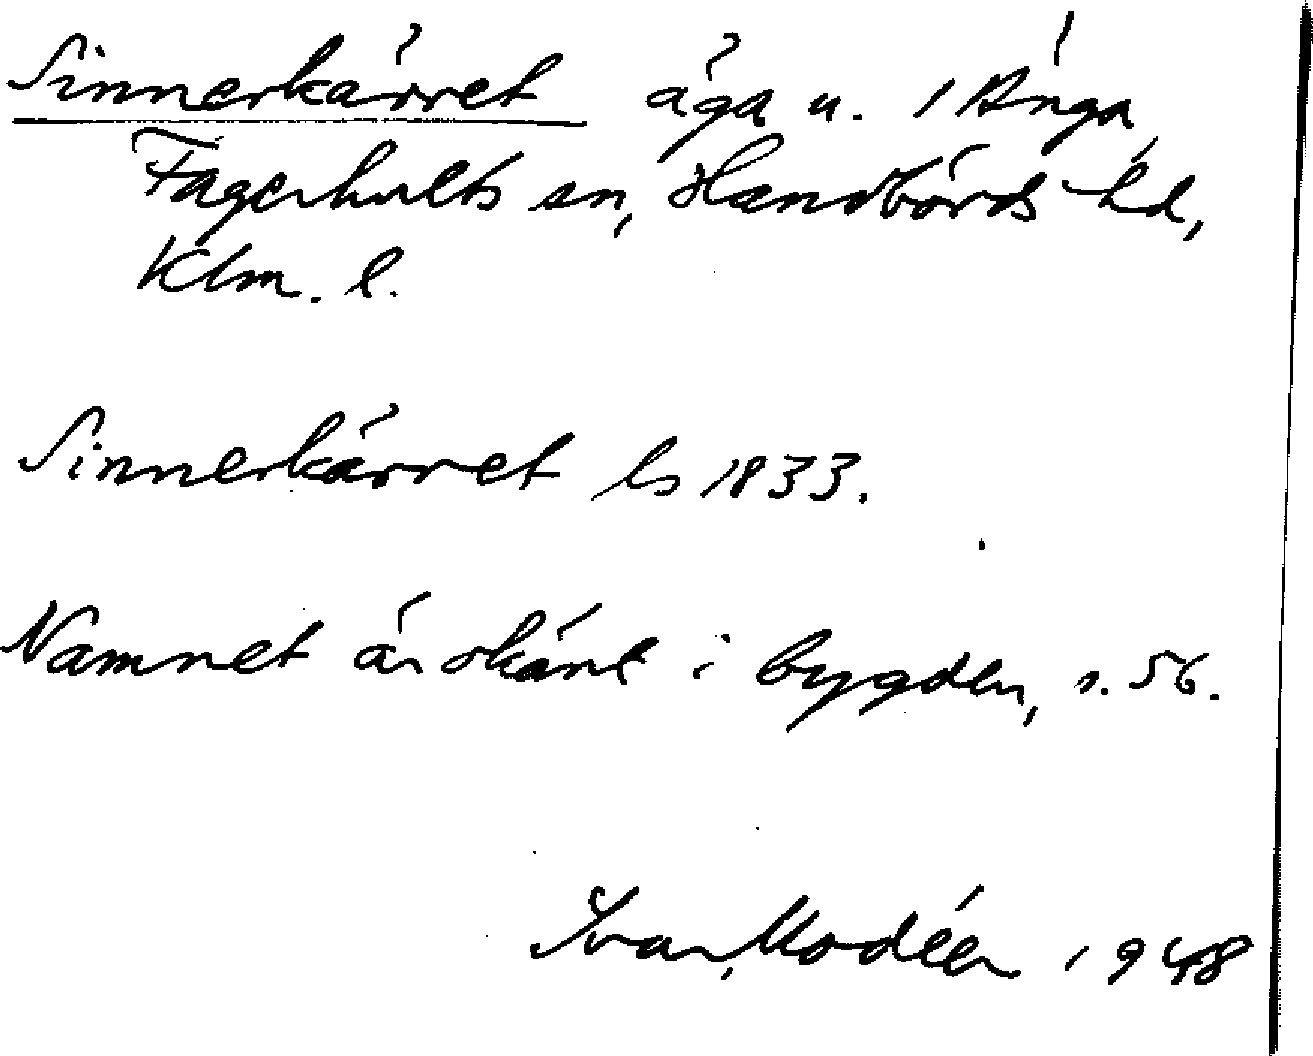 Sinnerkärret äga u. 1 Änga,
Fagerhults sn, Handbörds hd,
Klm. l.
Sinnerkärret ls 1833.
Namnet är okänt i bygden, s. 56.
Ivar Modéer 1948